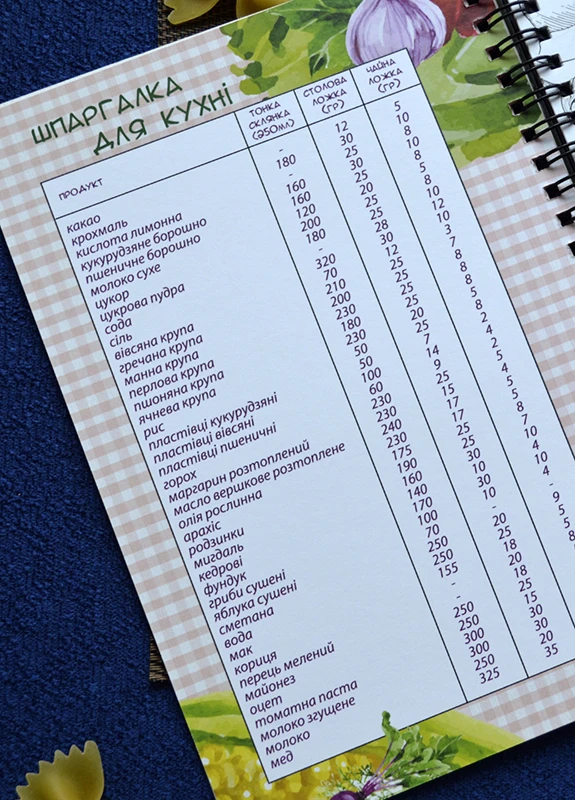 ШПАРГАЛКА
ДЛЯ КУХНІ
ПРОДУКТ
ТОНКА
СКЛЯНКА
(250МЛ)
СТОЛОВА
ЛОЖКА
(ГР)
ЧАЙНА
ЛОЖКА
(ГР)
какао
крохмаль
кислота лимонна
кукурудзяне борошно
пшеничне борошно
молоко сухе
цукор
цукрова пудра
сода
сіль
вівсяна крупа
гречана крупа
манна крупа
перлова крупа
пшоняна крупа
ячнева крупа
рис
пластівці кукурудзяні
пластівці вівсяні
пластівці пшеничні
горох
маргарин розтоплений
масло вершкове розтоплене
олія рослинна
арахіс
родзинки
мигдаль
кедрові
фундук
гриби сушені
яблука сушені
сметана
вода
мак
кориця
перець мелений
майонез
оцет
томатна паста
молоко згущене
молоко
мед
-
180
-
160
160
120
200
180
-
320
70
210
200
230
180
230
50
50
100
60
230
230
240
230
175
190
160
140
170
100
70
250
250
155
-
-
250
250
300
300
250
325
12
30
25
30
25
20
25
28
30
12
25
25
25
25
20
25
7
14
9
25
15
17
17
25
30
10
30
10
-
20
25
18
20
18
25
15
30
30
20
35
5
10
8
10
8
5
8
10
12
10
3
7
8
8
8
5
8
2
4
2
4
5
4
5
5
8
7
10
4
10
4
-
9
5
5
8